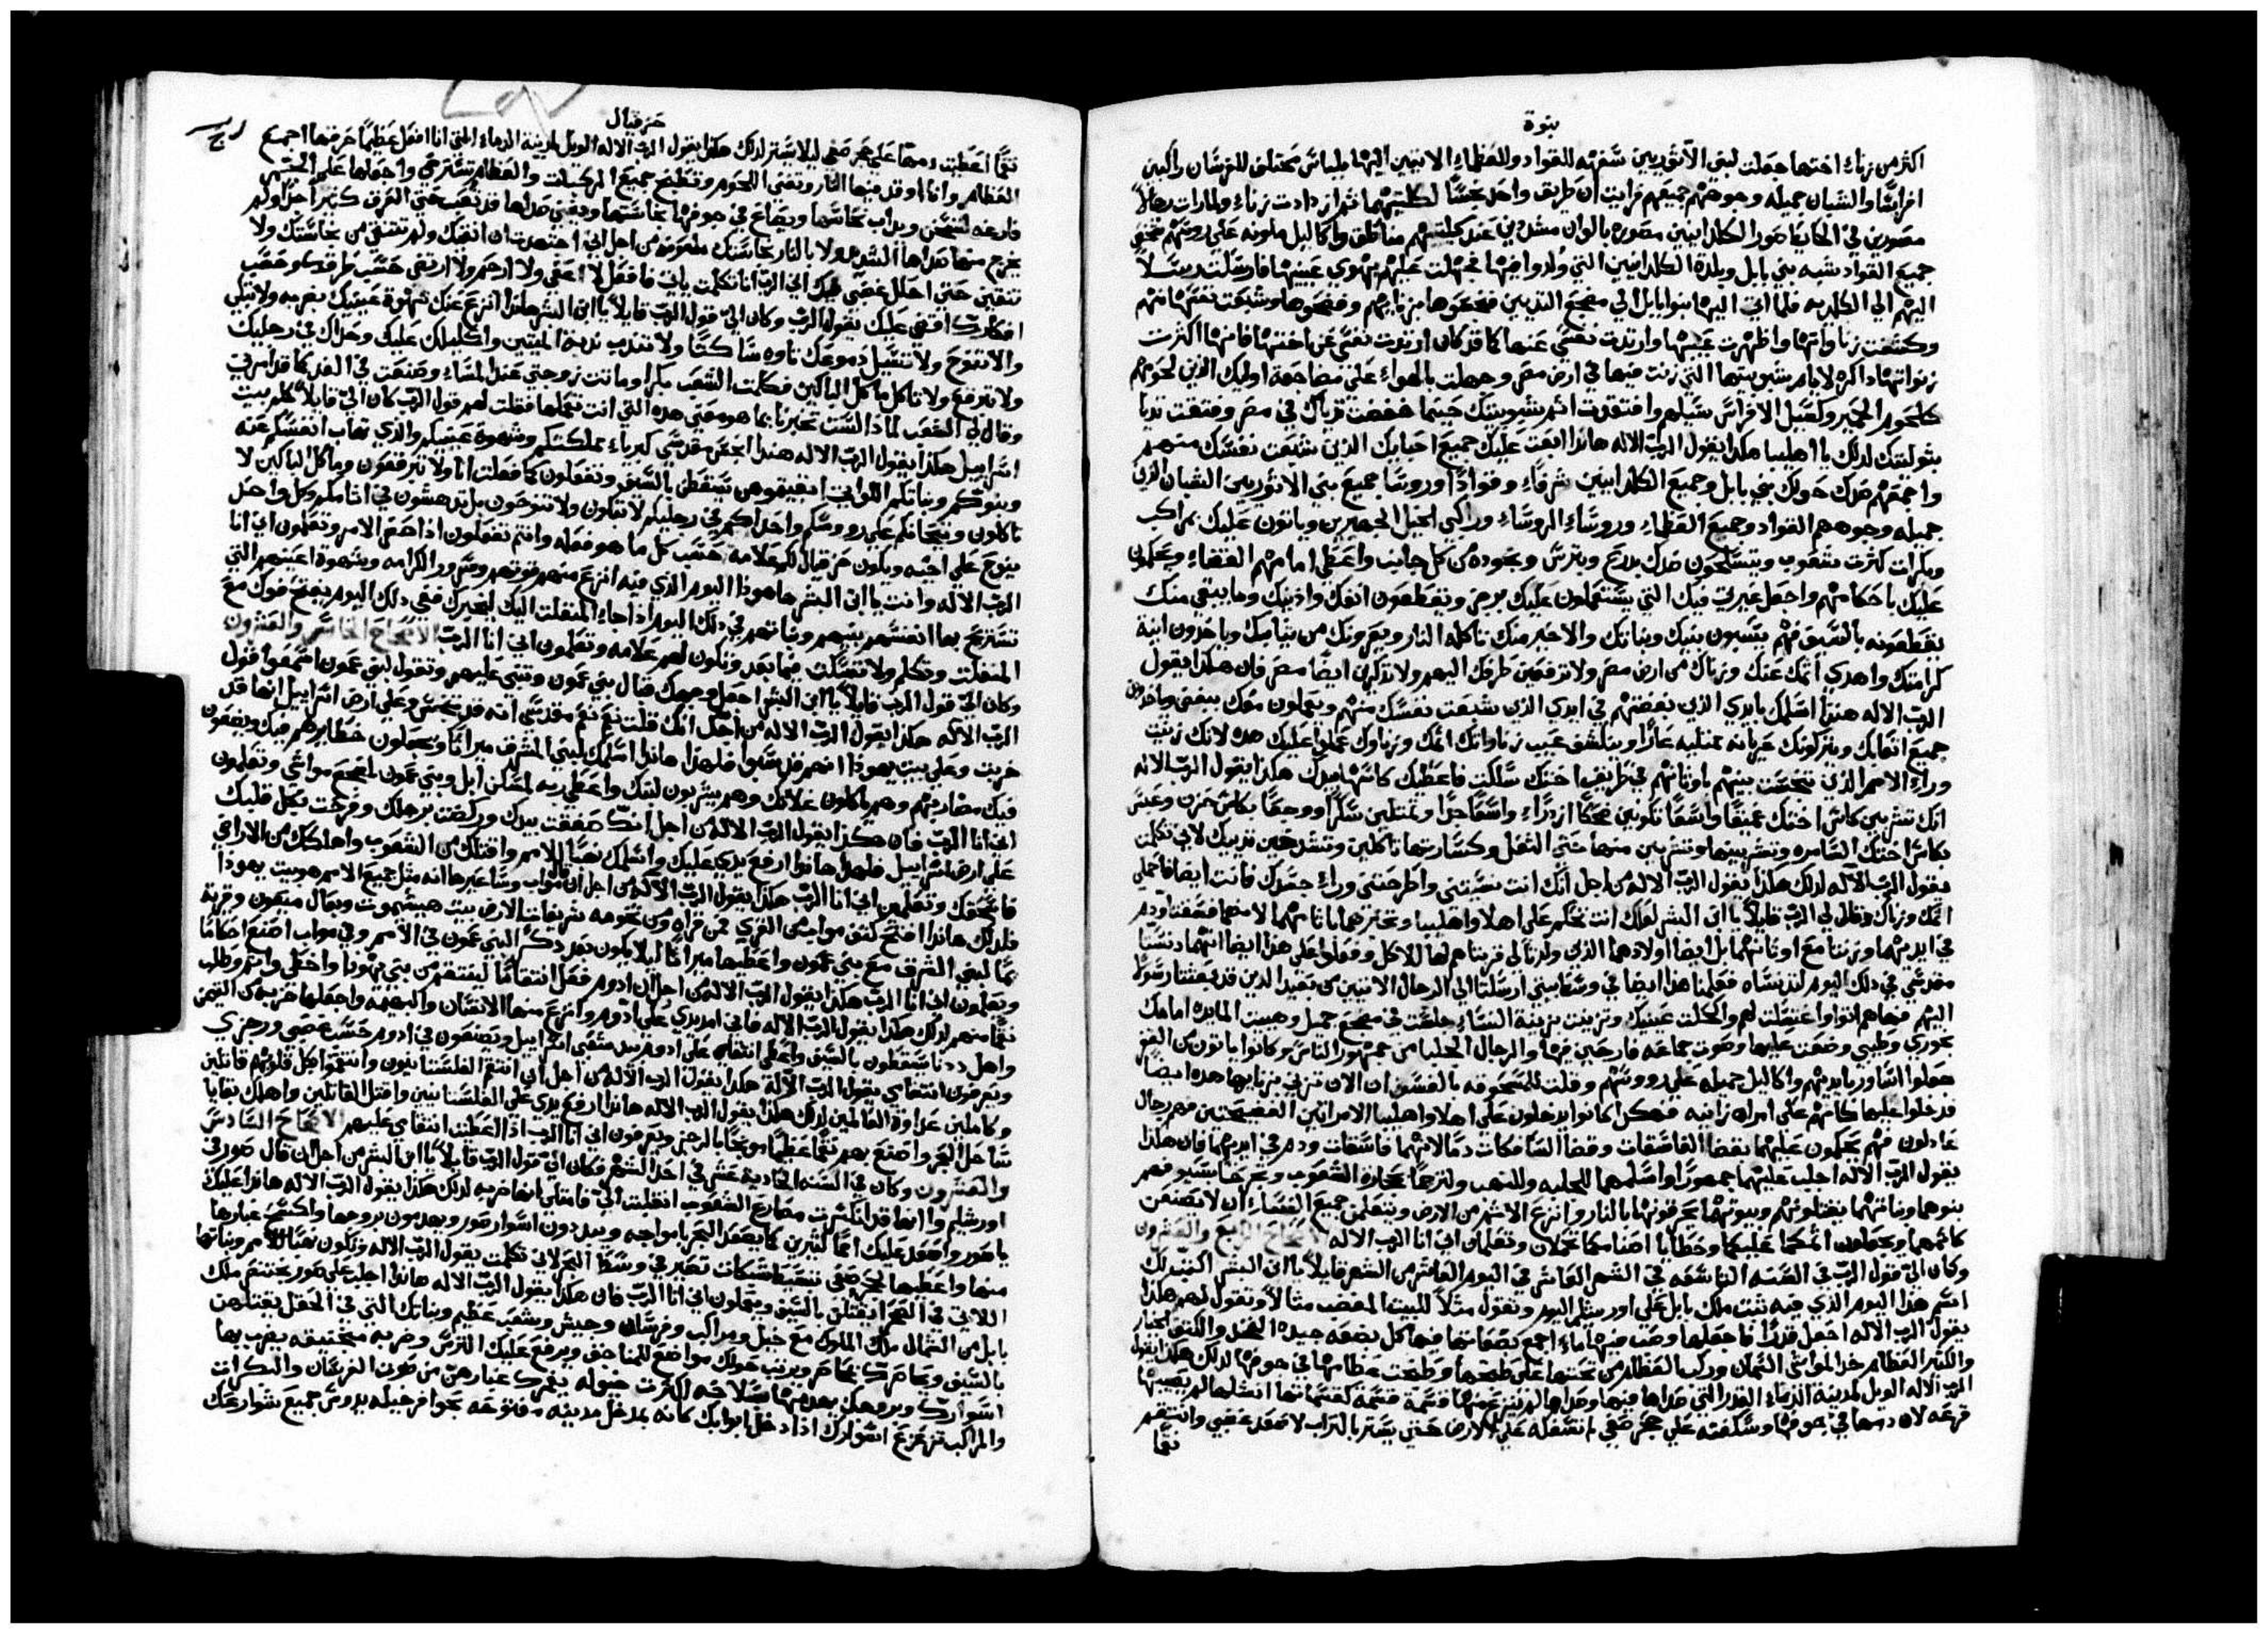 نبوة
اكثر من زناء اختها جعلت لبني الآثوريين سفرته للقواد وللعظماء الاتيين اليها بلباس مختلف للفرسان راكبين
افراسًا والشبان جميله وجوههم جميعهم فرايت ان طريق واحد نجسًا لكلتيهما ثم ازدادت زناء ولما رات رجالاً
مصورين في الحايط صور الكلدانيين مصوره بالوان مشدودين عند كليتهم مناطق واكاليل ملونه علي رووسهم فجميع
جميع القواد شبه بني بابل وبلدة الكلدانيين التي ولدوا فيها فجهلت عليهم بهوي عينيها فارسلت رسلاً
اليهم الي الكلديه فلما اتي اليها بنوا بابل الي مضجع الثديين فنجسوها بزناهم وفضحوها وشبعت نفسها منهم
وكشفت زناواتها واظهرت عيبها وارتدت نفسي عنها كما قد كان ارتدت نفسي عن اختها فانها اكثرت
زنواتها ذاكره لايام شبوبيتها التي زنت فيها في ارض مصر وجهلت بالهواء علي مضاجعة اوليك الذين لحومهم
كلحوم الحمير وكسيل الافراس سيلهم وافتقدت اثم شبوبيتك حيثما خفضت ثدياك في مصر وفتقت ثديا
بتوليتك لذلك يا اهليبا هكذا يقول الرب الاله هانذا ابعث عليك جميع احبابك الذين شبعت نفسك منهم
واجمعهم ضدك حولك بني بابل وجميع الكلدانيين شرفاء وقوادًا وروسا جميع بني الاثوريين الشبان الذين
جميله وجوههم القواد وجميع العظماء وروساء الروساء وراكبي الخيل الجهيرين وياتون عليك بمراكب
وبكرات كثرت شعوب ويتسلحون ضدك بدرع وبترس وبخوده من كل جانب واعطي امامهم القضاء ويحكمون
عليك باحكامهم واجعل غيرتي فيك التي يستعملون عليك برجز ويقطعون انفك واذنيك وما يبقي منك
يقطعونه بالسيف هم يسبون بنيك وبناتك والاخير منك تاكله النار ويعرونك من ثيابك وياخذون انية
كرامتك واهدي اثمك عنك وزناك من ارض مصر ولا ترفعين طرفك اليهم ولا تذكرين ايضًا مصر فان هكذا يقول
الرب الاله هانذا اسلمك بايدي الذين بغضتهم في ايدي الذين شبعت نفسك منهم ويعملون معك ببغض وياخذون
جميع اتعابك ويتركونك عريانه ممتليه عارًا وينكشف عيب زناواتك اثمك وزناوك عملوا عليك هذه لانك زنيت
وراء الامم الذين تنجست بينهم باوثانهم في طريق اختك سلكت فاعطيك كاسها بيدك هكذا يقول الرب الاله
انك تشربين كاس اختك عميقًا واسعًا تكونين ضحكًا ازدراء واسعًا جدًا وتمتلين سكرًا ووجعًا بكاس حزن وعبس
بكاس اختك السامره وتشربينها وتشربين منها حتي الثفل وكسارتها تاكلين وتشدخين ثدييك لاني تكلمت
يقول الرب الاله لذلك هكذا يقول الرب الاله من اجل انك انت نسيتني واطرحتني وراء جسدك فانت ايضا فاحملي
اثمك وزناك وقال لي الرب قايلاً يا ابن البشر لعلك انت تحكم علي اهلا واهليبا وتخبرهما باثامهما لانهما فسقتا ودم
في ايديهما وزنتا مع اوثانهما بل ايضا اولادهما الذين ولدتا لي قربتاهم لها للاكل وفعلوا علي هذا ايضا انهما دنستا
مقدسي في ذلك اليوم لتدنساه فعلتا هذا ايضا في وسط بيتي ارسلتا الي الرجال الاتيين من بعيد الذين قد بعثتا رسولاً
اليهم فهاهم اتوا واغتسلت لهم والكحلت عينيك وتزينت بزينة النساء جلست في مضجع جميل وهييت المايده امامك
بخوري وطيبي وضعت عليها وصوت جماعه فارحين فيها والرجال الجليا من جمهور الناس وكانوا ياتون من القفر
جعلوا اساور بايديهم واكاليل جميله علي رووسهم وقلت للمسحوقه بالفسق ان الان تزني بزناها هذه ايضًا
فدخلوا عليها كانهم علي امراه زانيه فهكذا كانوا يدخلون علي اهلا واهليبا الامراتين الفضيحتين فهم رجال
عادلون فهم يحكمون عليهما بقضا الفاسقات وقضا السافكات دمًا لانهما فاسقات ودم في ايديهما فان هكذا
يقول الرب الاله اجلب عليهما جمهورًا واسلمهما للجليه وللنهب ولترجما بحجارة الشعوب وتجرحا بسيوفهم
بنوهما وبناتهما يقتلونهم وبيوتهما يحرقونها بالنار وانزع الاثم من الارض ويتعلمن جميع النساء ان لا تصنعن
كاثمهما ويجعلون اثمكما عليكما وخطايا اصنامكما تحملان وتعلمان اني انا الرب الاله الاصحاح الرابع والعشرون
وكان الي قول الرب في السنه التاسعه في الشهر العاشر في اليوم العاشر من الشهر قايلاً يا ابن البشر اكتب لك
اسم هذا اليوم الذي فيه ثبت ملك بابل علي اورشليم اليوم وتقول مثلاً للبيت المغضب مثالاً وتقول لهم هكذا
يقول الرب الاله اجعل قدرًا فاجعلها وصب فيها ماء اجمع بضعاتها فيها كل بضعه جيده الفخذ والكتف المختار
والكثير العظام خذ المواشي السمان وركب العظام من تحتها علي طبخها وطبخت عظامها في جوفها لذلك هكذا يقول
الرب الاله الويل لمدينة الدماء القدر التي صداها فيها وصداها لم ينزع منها وقسمه قسمه كقسماتها انشلها لم يصيبها
قرعه لان دمها في جوفها وسكبته علي حجر صفي لم تسفكه علي الارض حتي يستر بالتراب لاصعد غضبي وانتقم
نقما
حزقيال
نقمًا اعطيت دمها علي حجر صفي ليلا يستر لذلك هكذا يقول الرب الاله الويل لمدينة الدماء التي انا افعل عظيمًا حرقتها اجمع
العظام وانا اوقد فيها النار ويفني اللحوم وتطبخ جميع التركيبات والعظام تشتوي واجعلها علي الجمر
فارغه لتسخن ويذاب نحاسها ويضاع في جوفها نجاستها ويفني صداها قد تعب حتي العرق كثيرًا جدًا ولم
يخرج منها صداها الشديد ولا بالنار نجاستك ملعونه من اجل اني اجتهدت ان انقيك ولم تتنقي من نجاستك ولا
تنقين حتي احلل غضبي فيك اني الرب انا تكلمت ياتي فافعل لا اعفي ولا ارحم ولا ارتضي حسب طرقك وحسب
افكارك اقضي عليك يقول الرب وكان الي قول الرب قايلاً يا ابن البشر هانذا انزع عنك شهوة عينيك بضربه ولا تبكي
والا تنوح ولا تسيل دموعك تاوه ساكتًا ولا تندب ندبة الميتين واكليلك عليك وحذاك في رجليك
ولا تبرقع ولا تاكل ماكل الباكين فكلمت الشعب بكرًا وماتت زوجتي عند المساء وصنعت في الغد كما قد امرني
وقال لي الشعب لماذا لست تخبرنا بما هو معني هذه التي انت تعملها فقلت لهم قول الرب كان الي قايلاً كلم بيت
اسراييل هكذا يقول الرب الاله هانذا انجس مقدسي كبرياء مملكتكم وشهوة عينيكم والذي تهاب انفسكم عنه
وبنوكم وبناتكم اللواتي ابقيتموهن تسقطن بالسيف وتفعلون كما فعلت انا ولا تبرقعون وماكل الباكين لا
تاكلون وتيجانكم علي رووسكم واحذاكم في رجليكم لا تبكون ولا تنوحون بل تدهشون في اثامكم وكل واحد
ينوح علي اخيه ويكون حزقيال لكم علامة حسب كل ما هو فعله وانتم تفعلون اذا حضر الامر وتعلمون اني انا
الرب الاله وانت يا ابن البشر ها هوذا اليوم الذي فيه انزع منهم قوتهم وسرور الكرامه وشهوة اعينهم التي
تستريح بها انفسهم بنيهم وبناتهم في ذلك اليوم اذا جاء المنفلت اليك ليخبرك ففي ذلك اليوم يفتح فوك مع
المنفلت وتكلم ولا تسكت فيما بعد وتكون لهم علامه وتعلمون اني انا الرب الاصحاح الخامس والعشرون
وكان الي قول الرب قايلاً يا ابن البشر اجعل وجهك قبال بني عمون وتنبي عليهم وتقول لبني عمون اسمعوا قول
الرب الاله هكذا يقول الرب الاله من اجل انك قلت نع نع مقدسي انه قد تنجس وعلي ارض اسراييل انها قد
خربت وعلي بيت يهوذا انهم قد سبوا فلهذا هانذا اسلمك لبني المشرق ميراثًا ويجعلون حظايرهم فيك ويضعون
فيك مضاربهم وهم ياكلون غلاتك وهم يشربون لبنك واعطي ربه لمسكن ابل وبني عمون لمضجع مواشي وتعلمون
اني انا الرب فان هكذا يقول الرب الاله من اجل انك صفقت بيدك وركضت برجلك وفرحت بكل قلبك
علي ارض اسراييل فلهذا هانذا ارفع يدي عليك واسلمك نهبًا للامم واقتلك من الشعوب واهلكك من الاراضي
فاسحقك وتعلمين اني انا الرب هكذا يقول الرب الاله من اجل ان قال مواب وساعير ها انه مثل جميع الامم هو بيت يهوذا
فلذلك هانذا افتح كتف مواب من القري من قراه ومن تخومه شريفات الارض بيت هيشموت وبعال معون وقرية
تيما لبني الشرق مع بني عمون واعطيها ميراثًا ليلا يكون بعد ذكر لبني عمون في الامم وفي مواب اصنع احكامًا
ويعلمون اني انا الرب هكذا يقول الرب الاله من اجل ان ادوم فعل انتقامًا لينتقم من بني يهوذا واخطي واثم وطلب
نقمًا منهم لذلك هكذا يقول الرب الاله فاني امد يدي علي ادوم وانزع منها الانسان والبهيمه واجعلها خربه من التيمن
واهل ددنا يسقطون بالسيف واعطي انتقامي علي ادوم بيد شعبي اسراييل ويصنعون في ادوم حسب غضبي ورجزي
ويعرفون انتقامي يقول الرب الاله هكذا يقول الرب الاله من اجل ان انتقم الفلسطانيون وانتقموا بكل قلوبهم قاتلين
وكاملين عداوة العالمين لذلك هكذا يقول الرب الاله هانذا ارفع يدي علي الفلسطانيين واقتل القاتلين واهلك بقايا
ساحل البحر واصنع بهم نقمًا عظيمًا موبخًا بالرجز ويعرفون اني انا الرب اذا اعطيت انتقامي عليهم الاصحاح السادس
والعشرون وكان في السنه الحادية عشر في احد الشهر فكان الي قول الرب قايلاً يا ابن البشر من اجل ان قال صور في
اورشليم وا انها قد انكسرت مصاريع الشعوب انقلبت الي فامتلي انها خربه لذلك هكذا يقول الرب الاله هانذا عليك
يا صور واصعد عليك اممًا كثيرين كما يصعد البحر بامواجه ويبددون اسوار صور ويهدمون بروجها واكسح غبارها
منها واعطيها لحجر صفي تبسيط شبكات تصير في وسط البحر لاني تكلمت يقول الرب الاله وتكون نهبًا للامم وبناتها
اللاتي في البقعا يقتلن بالسيف ويعلمون اني انا الرب فان هكذا يقول الرب الاله هانذا اجلب علي صور بختنصر ملك
بابل من الشمال ملك الملوك مع خيل ومراكب وفرسان وجيش وشعب عظيم وبناتك التي في الحقل يقتلهن
بالسيف ويحاصرك بحاصر ويرتب حولك مواضع للمناجق ويرفع عليك الترس وضربه منجنيقه يضرب بها
اسوارك وبروجك يهدمها بسلاحه لكثرت خيوله يغمرك غبارهن من صوت الفرسان والبكرات
والمراكب تزعزع اسوارك اذا دخل ابوابك كانه بمدخل مدينه مفتوحه بحوافر خيله يدوس جميع شوارعك